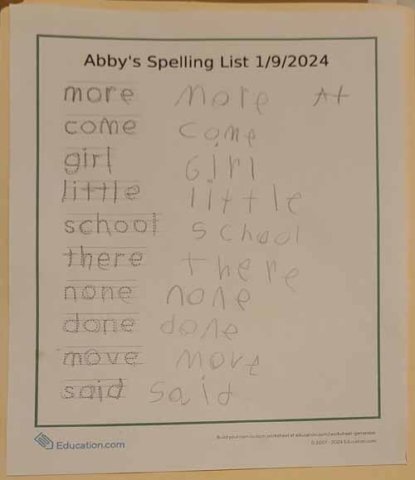 Abby's Spelling List 1/9/2024
more more A+
come come
girl Girl
little little
school school
there there
none none
done done
move move
said said
Education.com
Build your own custom worksheet at education.com/worksheet-generator
© 2007 - 2024 Education.com